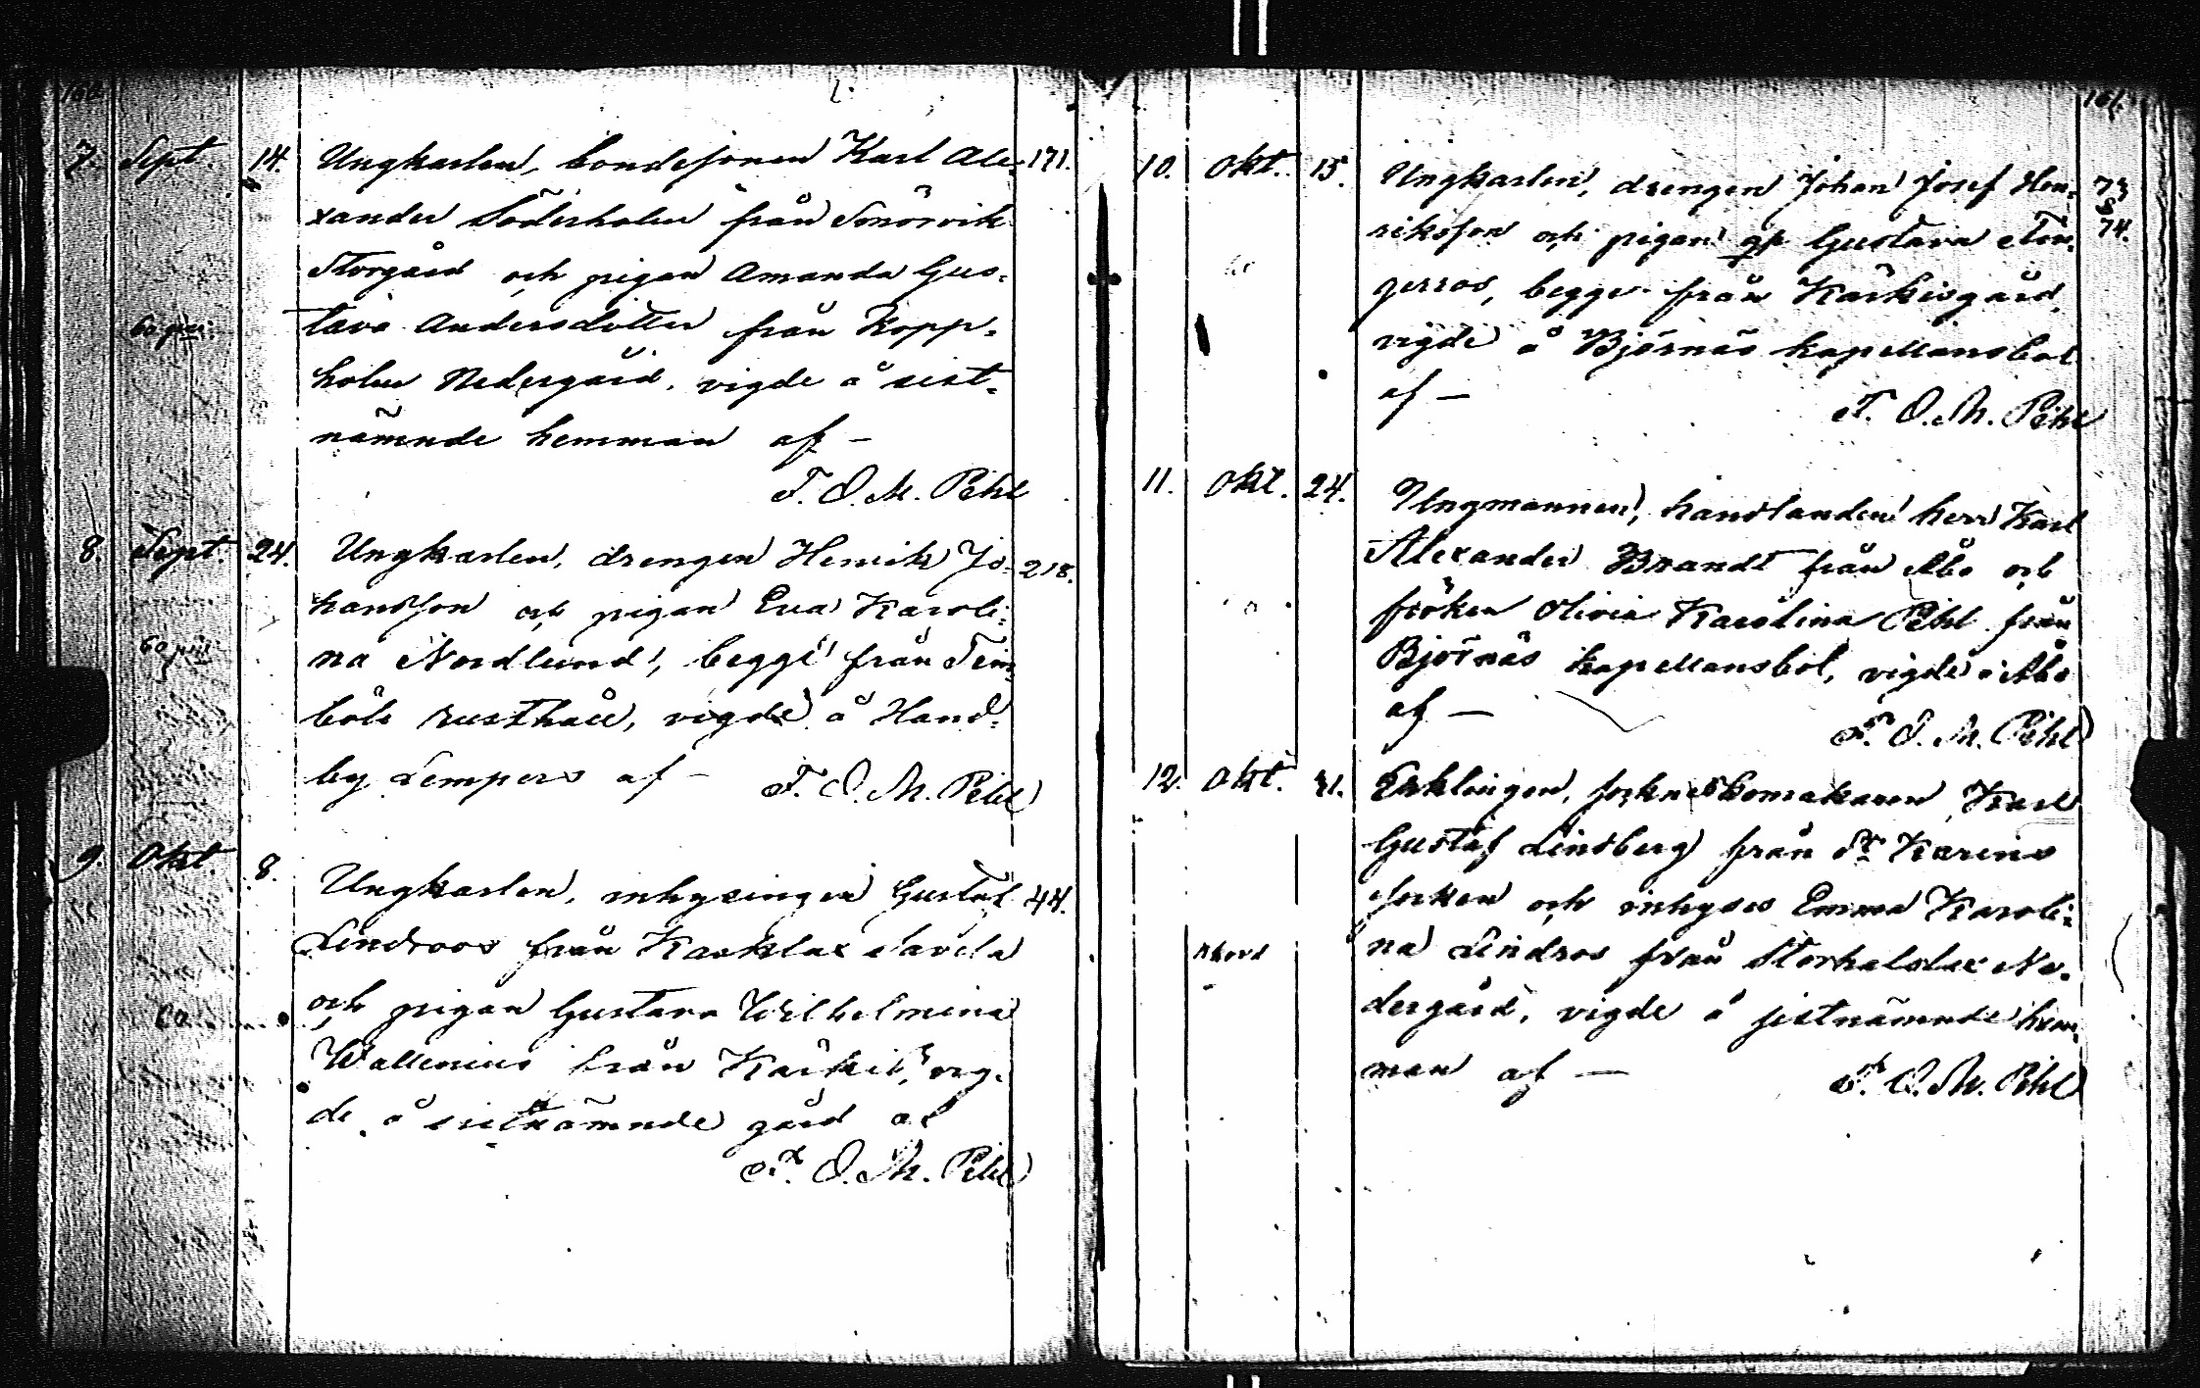 7. Sept. 14. Ungkarlen, bondesonen Karl Ale- 171.
xander Söderholm från Smörvik
Storgård och pigan Amanda Gus-
tava Andersdotter från Kopp-
holm Nedergård, vigde å sist-
nämnde hemman af –
T. O. M. Pihl
8. Sept. 24. Ungkarlen, drengen Henrik Jo- 218.
hansson och pigan Eva Karoli-
na Nordlund, begge från
böle rusthåll, vigde å Hand-
by Lempers af – T. O. M. Pihl
9. Okt. 8. Ungkarlen, inhysingen Gustaf 44.
Lindroos från Karklax
och pigan Gustava Wilhelmina
Wallenius från Kärkis, vig-
de å sistnämnde gård af
T. O. M. Pihl
161.
10. Okt. 15. Ungkarlen, drengen Johan Josef Hen- 73
riksson och pigan Gustava 74.
begge från Kärkisgård,
vigde å Björnäs kapellansbol
af – T. O. M. Pihl
11. Okt. 24. Ungmannen, handlanden herr Karl
Alexander Brandt från Åbo och
fröken Olivia Karolina Pihl från
Björnäs kapellansbol, vigde i Åbo
af – T. O. M. Pihl
12. Okt. 31. Enklingen, sockneskomakaren Karl
Gustaf Lindberg från St Karins
socken och inhyses Emma Karoli-
na Lindros från Ne-
dergård, vigde å sistnämnde hem-
man af — T. O. M. Pihl